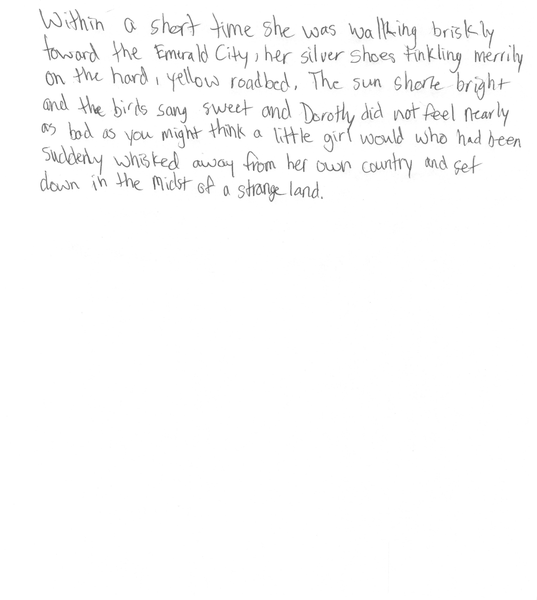 Within a short time she was wallking briskly
toward the Emerald City, her silver shoes tinkling merrily
on the hard, yellow roadbed. The sun shone bright
and the birds sang sweet and Dorothy did not feel nearly
as bad as you might think a little girl would who had been
suddenly whisked away from her own country and set
down in the midst of a strange land.